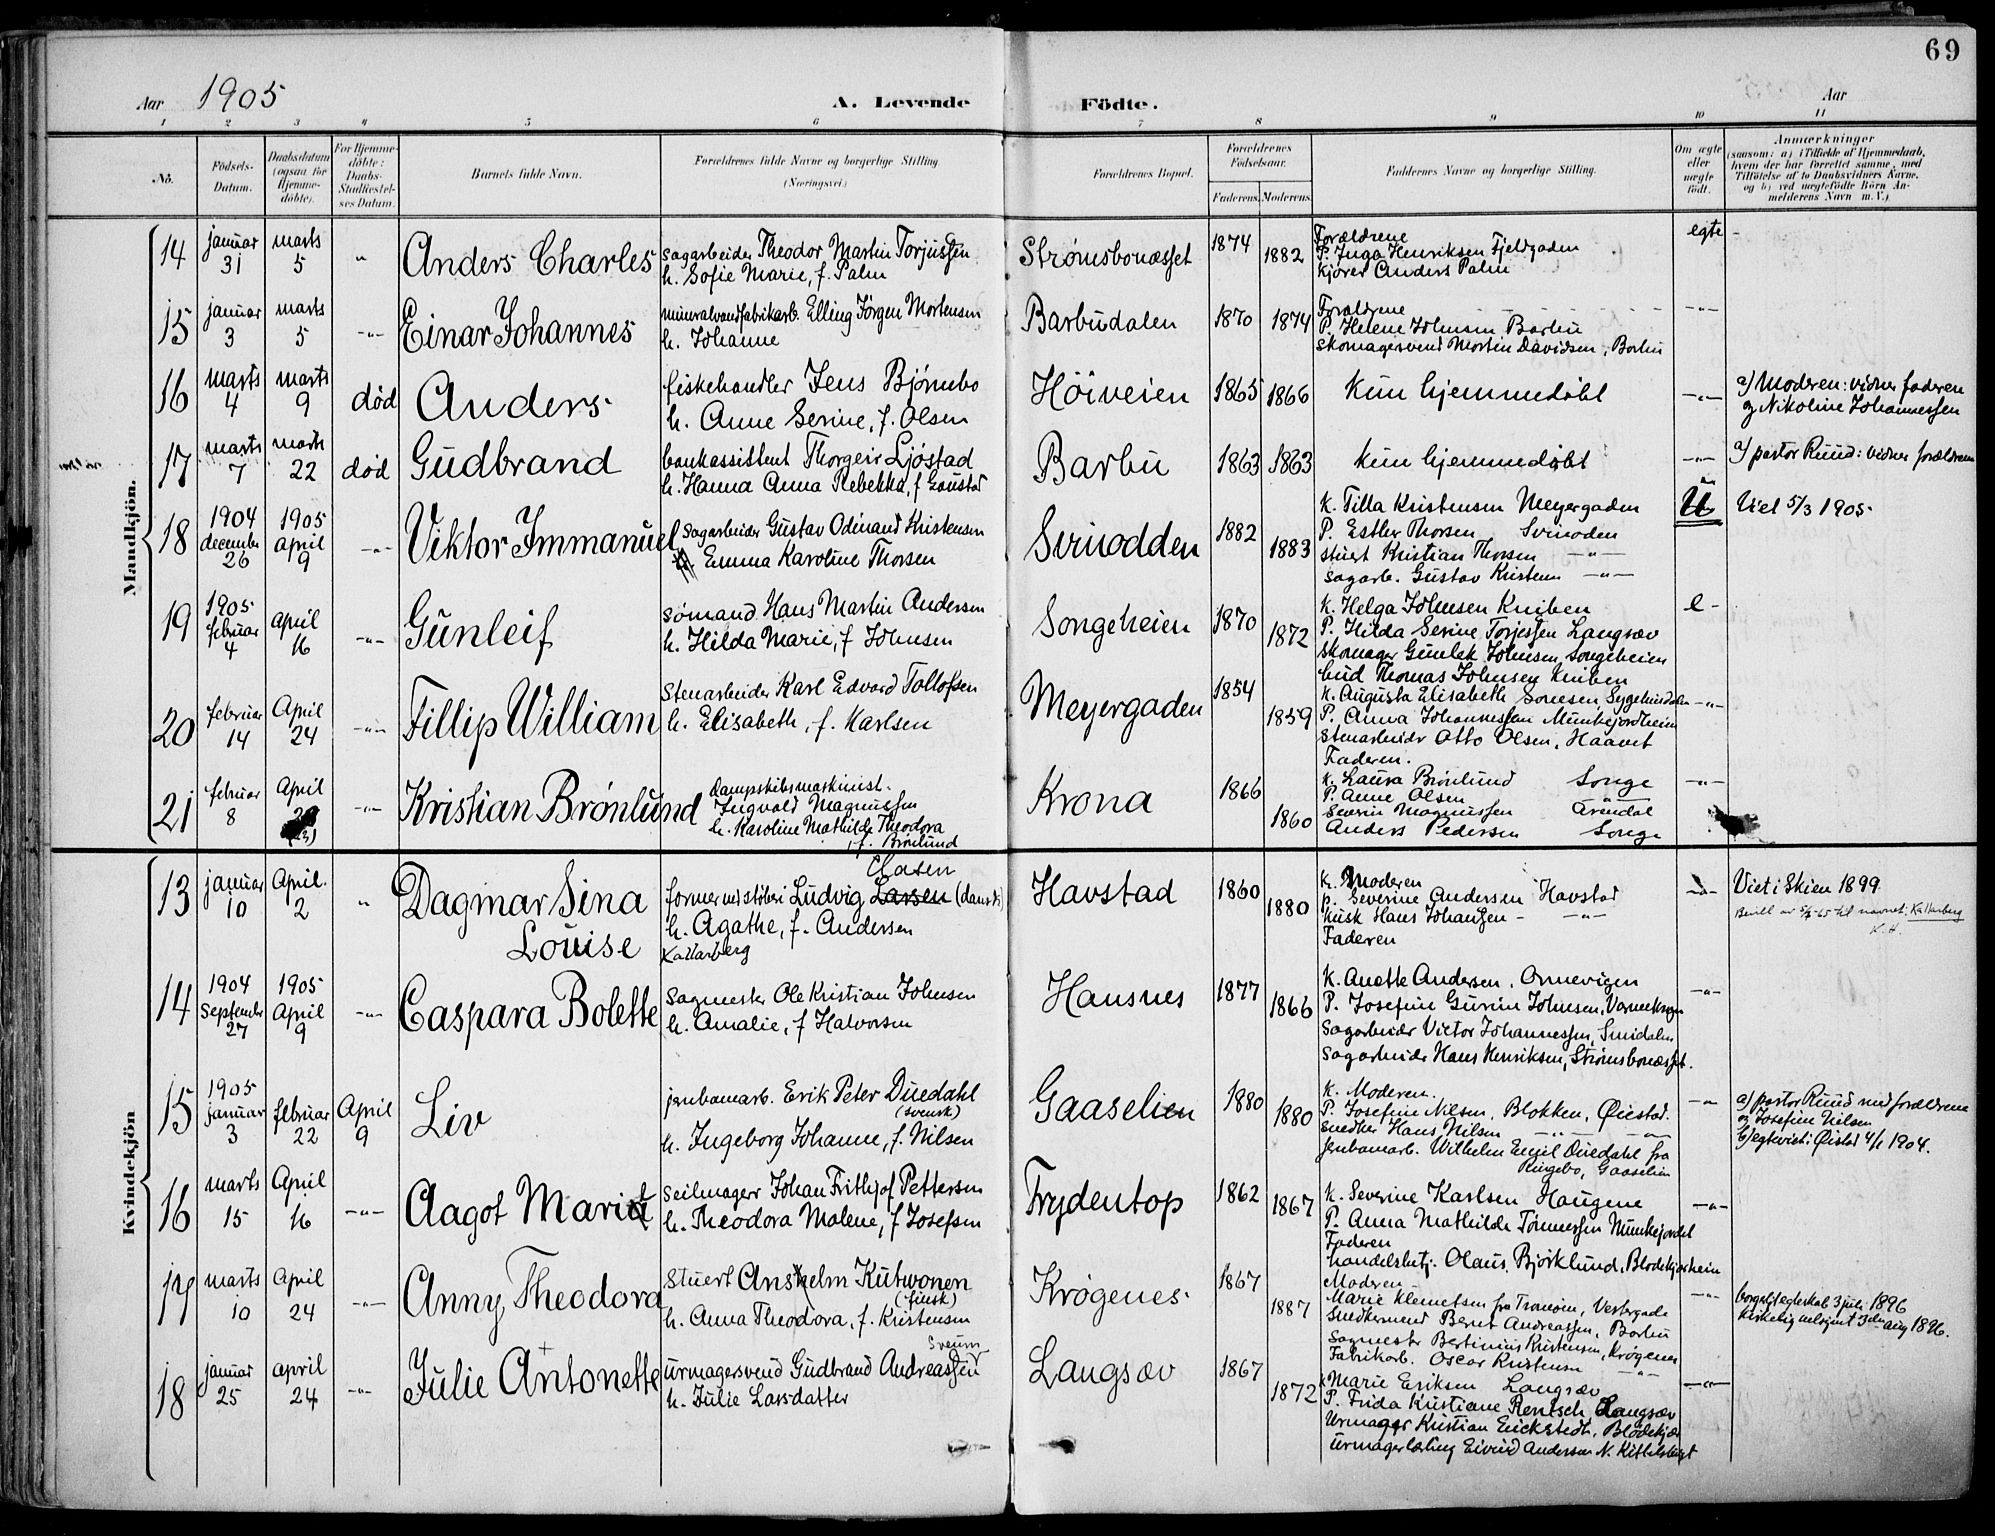 69
Aar 1905
A. Levende Födte.
Aar
1 2 3 4 5 6 7 8 9 10 11
No.
Födsels-Datum.
Daabsdatum (ogsaa for Hjemme-döbte).
For Hjemme-döbte: Daabs-Stadfæstel-ses Datum.
Barnets fulde Navn.
Forældrenes fulde Navne og borgerlige Stilling. (Næringsvei.)
Forældrenes Bopæl.
Forældrenes Födselsaar.
Faderens. Moderens.
Faddernes Navne og borgerlige Stilling.
Om ægte eller uægte födt.
Anmærkninger
(saasom: a) i Tilfælde af Hjemmedaab,
hvem der har forrettet samme, med
Tilföielse af to Daabsvidners Navne,
og b) ved uægtefödte Börn An-
melderens Navn m. V.)
Mandkjön.
14 januar 31 marts 5 " Anders Charles
sagarbeider Theodor Martin Torjussen
h. Sofie Marie, f. Palm
Strømsbonæsset 1874 1882
Forældrene
P. Inga Henriksen Fjeldgaden
kjører Anders Palm
egte -
15 januar 3 marts 5 -"- Einar Johannes
mineralvandfabrikarb. Elling Jørgen Mortensen
h. Johanne
Barbudalen 1870 1874
Forældrene
P. Helene Johnsen Barbu
skomagersvend Martin Davidsen, Barbu
-"-
16 marts 4 marts 9 død Anders
fiskehandler Jens Bjørnebo
h. Anne Serine, f. Olsen
Høiveien 1865 1866
kun hjemmedøbt
-"-
a) Moderen: vidner faderen
og Nikoline Johannessen
17 marts 7 marts 22 død Gudbrand
bankassistent Thorgeir Ljøstad
h. Hanna Anna Rebekka, f. Goustad
Barbu 1863 1863
kun hjemmedøbt
-"-
a) pastor Ruud: vidner forældrene
18 1904 december 26 1905 april 9 -"- Viktor Immanuel
sagarbeider Gustav Odinand Kristensen
Emma Karoline Thorsen
Svinodden 1882 1883
K. Tilla Kristensen Meyergaden
P. Esther Thorsen Svinoden
stuert Kristian Thorsen -"-
sagarb. Gustav Kristens -"-
U
Viet 5/3 1905.
19 1905 februar 4 april 16 -"- Gunleif
sømand Hans Martin Andersen
h. Hilda Marie, f Johnsen
Songeheien 1870 1872
K. Helga Johnsen Kniben
P. Hilda Serine Torjessen Langsæv
skomager Gunlek Johnsen, Songeheien
bud Thomas Johnsen Kniben
e -
20 februar 14 April 24 -"- Fillip William
Stenarbeider Karl Edvard Tollofsen
h. Elisabeth, f. Karlsen
Meyergaden 1854 1859
K. Augusta Elisabeth
P. Anna Johannessen Munkejordheien
Stenarbeider Otto Olsen, Haavet
Faderen.
-"-
21 februar 8 April (23) -"- Kristian Brønlund
dampskibsmaskinist.
Ingvald Magnussen
h. Karoline Mathilde Theodora
f. Brønlund
Krona 1866 1860
K. Laura Brønlund Songe
P. Anne Olsen -"-
Severin Magnussen Arendal
Anders Pedersen Songe
-"-
Kvindekjön
13 januar 10 April. 2 " Dagmar Sina Louise
Clasen
former ved støberi Ludvig Larsen (dansk)
h. Agathe, f. Andersen
Kallarberg
Havstad 1860 1880
K. Moderen
P. Severine Andersen Havstad
kusk Hans Johansen - -"-
Faderen
-"-
Viet i Skien 1899.
til navnet: Kallarberg
K.H.
14 1904 September 27 1905 April 9 -"- Caspara Bolette
Sagmester Ole Kristian Johnsen
h. Amalie, f Halvorsen
Hansnes 1877 1866
K. Anette Andersen, Ormevigen
P. Josefine Gurine Johnsen,
Sagarbeider Victor Johannessen,
Sagarbeider Hans Henriksen, Strømsbonæsset.
-"-
15 1905 januar 3 februar 22 April 9 Liv
jernbanearb. Erik Peter Duedahl
(svensk)
h. Ingeborg Johanne, f. Nilsen
Gaaselien 1880 1880
K. Moderen.
P. Josefine Nilsen, Blokken, Øiestad.
snedker Hans Nilsen -"- -"-
Jernbanearb. Wilhelm Emil Duedahl fra
Ringebo, Gaaselien
-"-
a) pastor Ruud med forældrene
og Josefine Nilsen
b) egteviet i Øistad 4/1 1904.
16 marts 15 April 16 -"- Aagot Mariat
seilmager Johan Frithjof Pettersen
h. Theodora Malene, f Josefsen
Frydentop 1862 1867
K. Severine Karlsen Haugene
P. Anna Mathilde Tønnessen Munkejordet
Faderen
handelsbetj. Olaus Bjørklund, Blødekjærheien
-"-
17 marts 10 April 24 -"- Anny Theodora
Stuert Anshelm Kutwonen
(finsk)
h. Anna Theodora, f. Kristensen
Krøgenes 1867 1887
Moderen -
Marie Klemetsen fra Tromøen, Vestergade
Snedkersvend Bernt Andreassen, Barbu
Sagmester Bertinius Kristensen, Krøgenes
Fabrikarb. Oscar Kristensen -"-
-"-
borgerligt egteskab 3 juli 1896
kirkelig velsignet 3die aug 1896.
18 januar 25 april 24 -"- Julie Antonette
Sveum
urmagersvend Gudbrand Andreassen
h. Julie Larsdatter
Langsæv 1867 1872
K Marie Eriksen Langsæv
P. Frida Kristiane Rentsch Langsæv
Urmager Kristian Eickstedt, Blødekjær
urmagerlærling Eivind Andersen N. Kittelsbugt
-"-